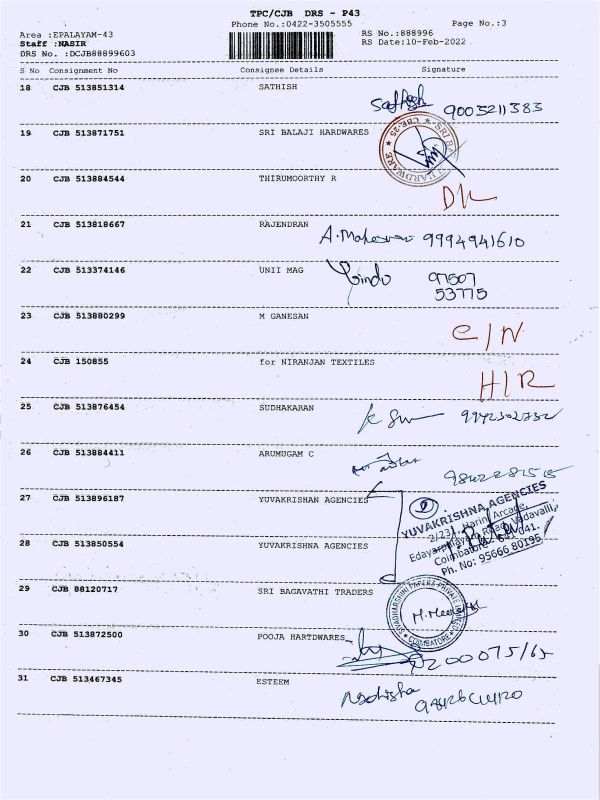 TPC/CJB DRS - P43
Phone No.:0422-3505555
Page No.:3
Area :EPALAYAM-43
RS No.:888996
Staff :NASIR
RS Date:10-Feb-2022
DRS No. :DCJB88899603
S No Consignment No Consignee Details Signature
18 CJB 513851314 SATHISH Sathish 9003211383
19 CJB 513871751 SRI BALAJI HARDWARES
20 CJB 513884544 THIRUMOORTHY R DL
21 CJB 513818667 RAJENDRAN A. Maheswari 9994941610
22 CJB 513374146 UNII MAG Bindu 97507
53775
23 CJB 513880299 M GANESAN C/N
24 CJB 150855 for NIRANJAN TEXTILES H/R
25 CJB 513876454 SUDHAKARAN 9942302732
26 CJB 513884411 ARUMUGAM C
27 CJB 513896187 YUVAKRISHAN AGENCIES
YUVAKRISHNA AGENCIES
2/231, Harini Arcade,
Edayarpalayam Road, Vadavalli,
Coimbatore - 641 041.
Ph. No: 95666 80195
28 CJB 513850554 YUVAKRISHNA AGENCIES
29 CJB 88120717 SRI BAGAVATHI TRADERS
COIMBATORE
30 CJB 513872500 POOJA HARTDWARES
31 CJB 513467345 ESTEEM